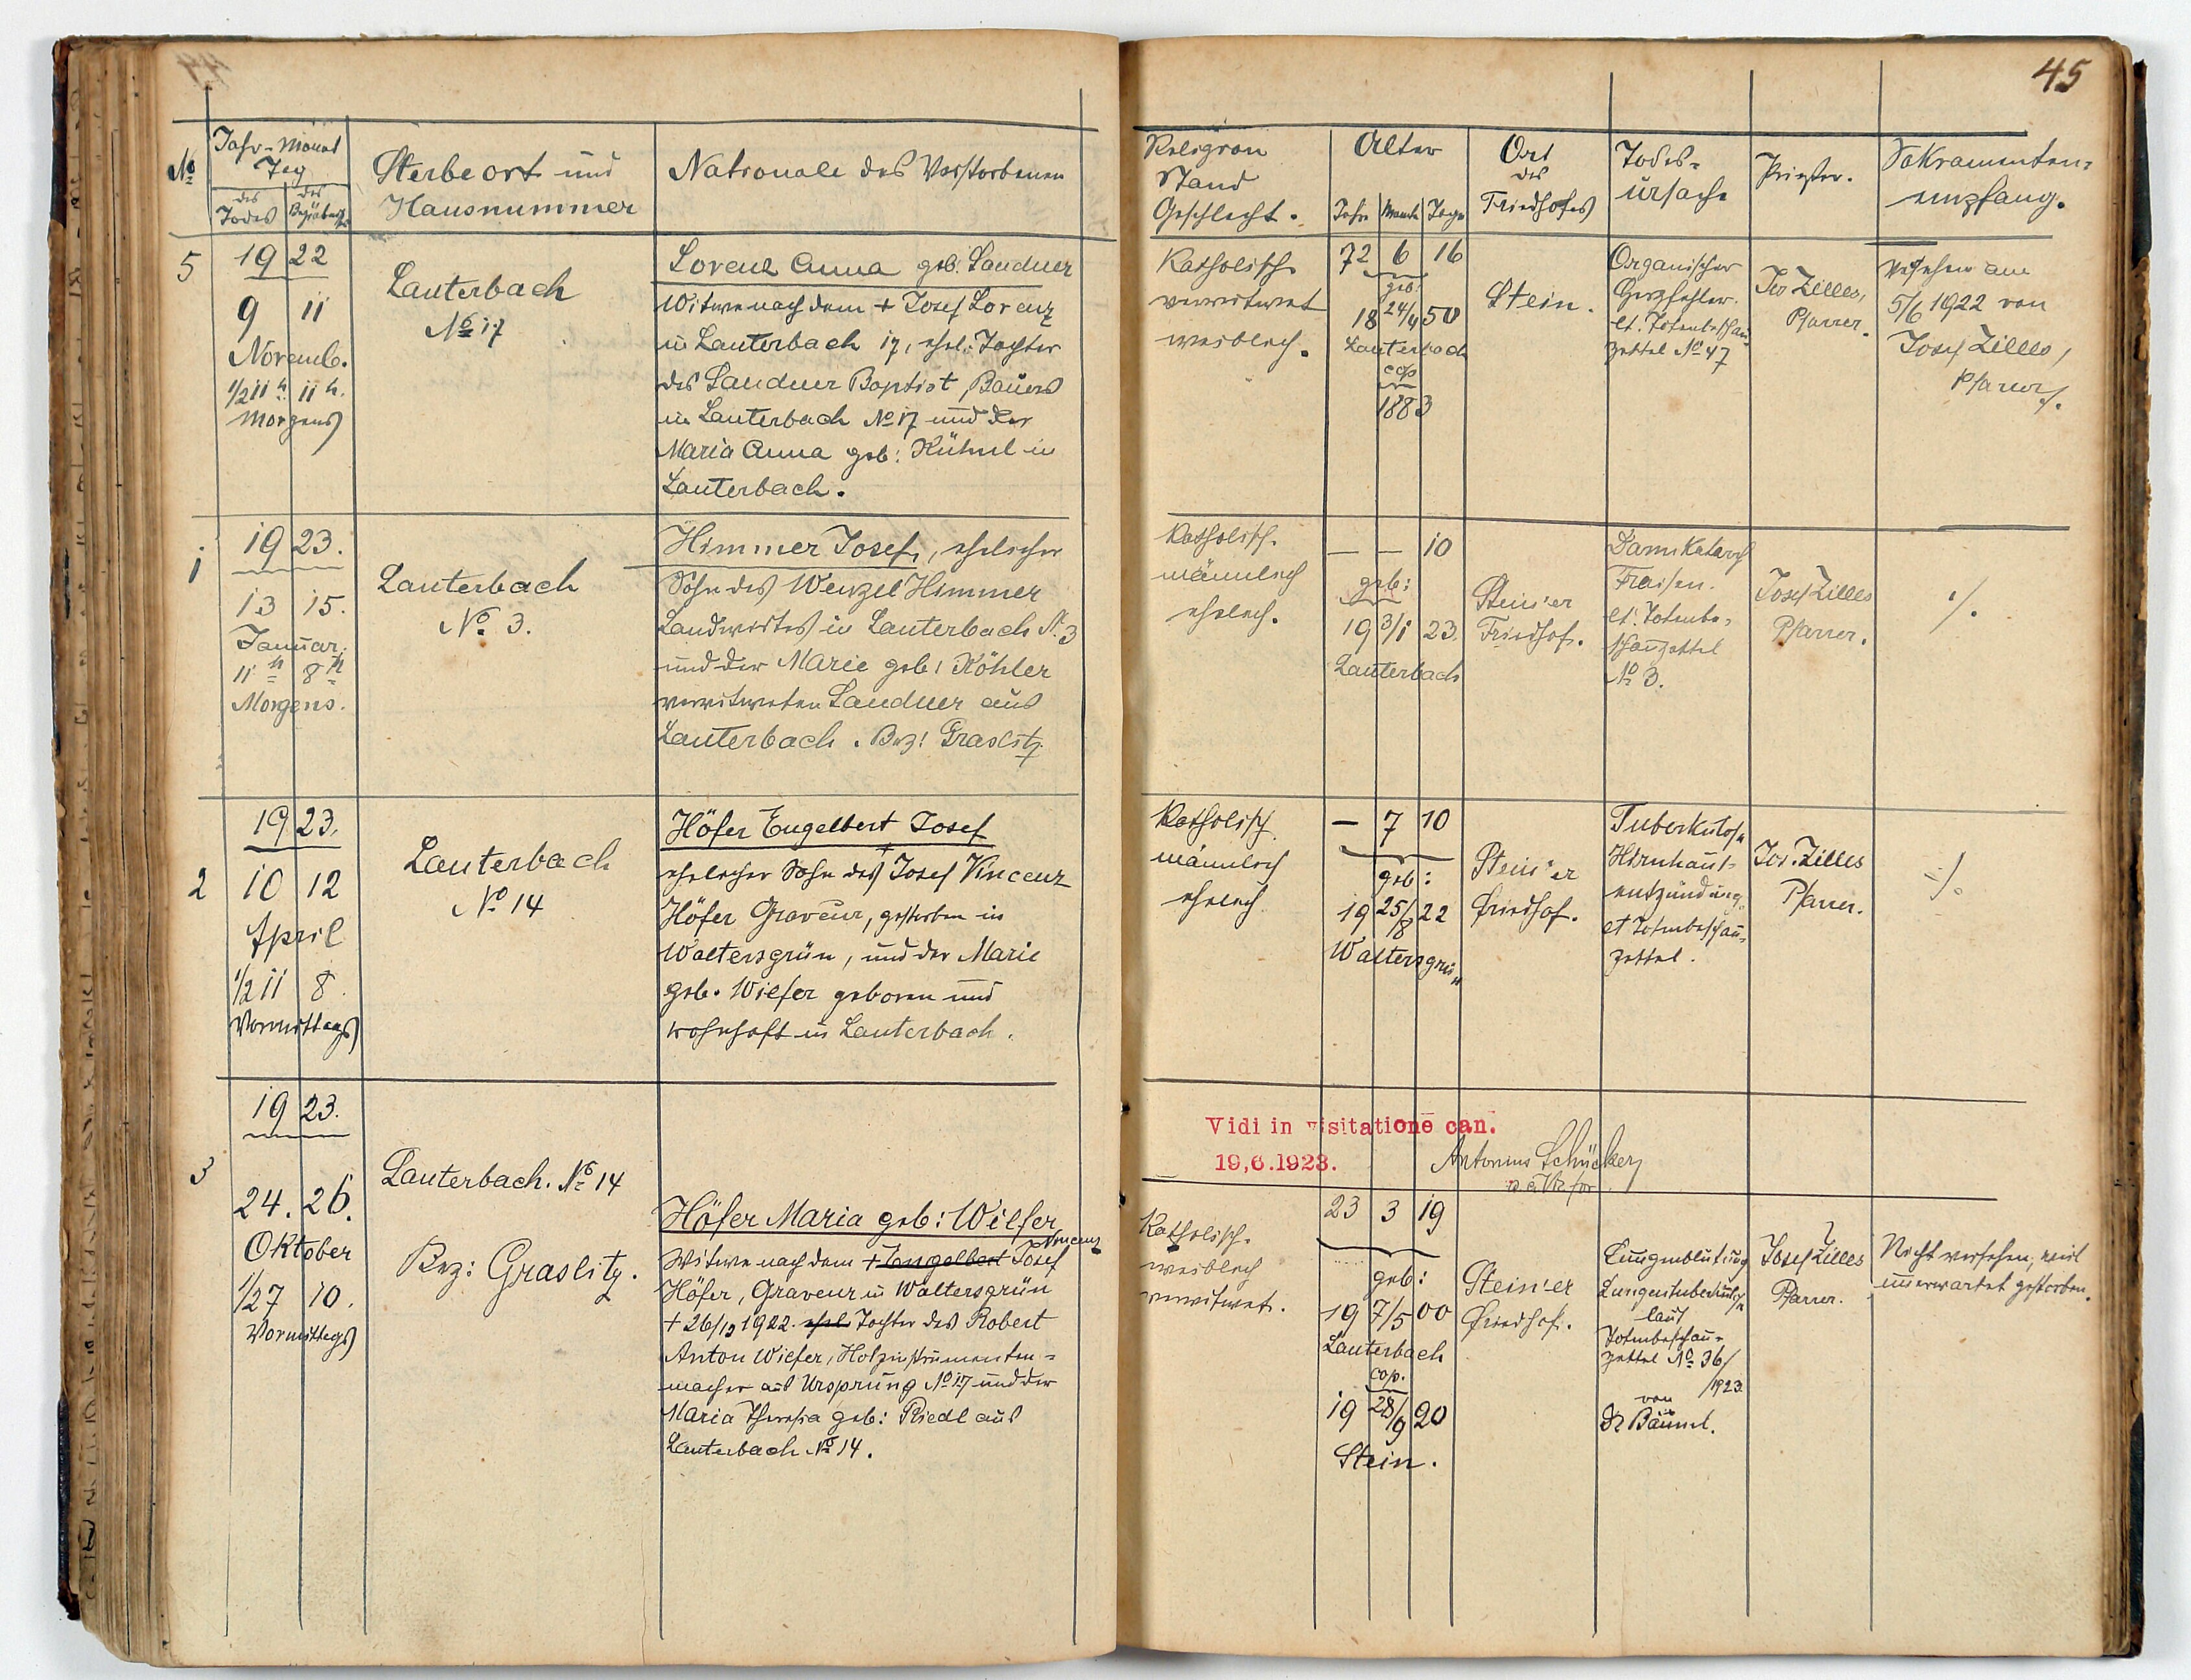 45
No
Jahr-Monat
Tag
des Todes
des Begräbnisses
Sterbeort und
Hausnummer
Nationale des Verstorbenen
Religion
Stand
Geschlecht.
Alter
Jahre Monate Tage
Ort
des
Friedhofes
Todes-
ursache
Priester.
Sakramenten-
empfang.
5
1922
9 11
Novemb.
1/2 11 h. 11 h.
Morgens
Lauterbach
No 17
Lorenz Anna geb. Sandner
Witwe nach dem + Josef Lorenz
in Lauterbach 17, ehel. Tochter
des Sandner Baptist, Bauers
in Lauterbach No 17 und der
Maria Anna geb: Kühnl in
Lauterbach.
Katholisch
verwitwet
weiblich.
72 6 16
geb:
18 24/4 50
Lauterbach
cop
1883
Stein.
Organischer
Herzfehler.
lt. Totenbeschau
zettel No 47
Jos Zilles,
Pfarrer.
Versehen am
5/6 1922 von
Josef Zilles,
Pfarrer.
1
1923.
13 15.
Januar.
11 h 8 h
Morgens.
Lauterbach
No. 3.
Himmer Josef, ehelicher
Sohn des Wenzel Himmer
Landwirtes in Lauterbach N. 3
und der Marie geb: Köhler
verwitweten Sandner aus
Lauterbach. Bez: Graslitz
Katholisch.
männlich
ehelich.
— — 10
geb:
19 3/1 23.
Lauterbach
Stein'er
Friedhof.
Darmkatarrh
Fraisen.
lt. Totenbe-
schauzettel
No 3.
Josef Zilles
Pfarrer.
./.
2
1923.
10 12
April
1/2 11 8.
Vormittags
Lauterbach
No 14
Höfer Engelbert Josef
ehelicher Sohn des + Josef Vincenz
Höfer Graveur, gestorben in
Waltersgrün, und der Marie
geb. Wilfer geboren und
wohnhaft in Lauterbach.
Katholisch
männlich
ehelich.
— 7 10
geb:
19 25/8 22
Waltersgrün
Stein'er
Friedhof.
Tuberkulose
Hirnhaut-
entzündung.
lt Totenbeschau-
zettel.
Jos. Zilles
Pfarrer.
./.
Vidi in visitatione can.
19.6.1923.
Antonius
3
1923.
24. 26.
Oktober
1/2 7 10.
Vormittags
Lauterbach. No 14
Bez: Graslitz.
Höfer Maria geb: Wilfer
Witwe nach dem + Engelbert Josef Vincenz
Höfer, Graveur in Waltersgrün
+ 26/12 1922. ehel Tochter des Robert
Anton Wilfer, Holzinstrumenten-
macher aus Ursprung No 17 und der
Maria Theresia geb: Riedl aus
Lauterbach No 14.
Katholisch.
weiblich
verwitwet.
23 3 19
geb:
19 7/5 00
Lauterbach
cop.
19 28/9 20
Stein.
Stein'er
Friedhof.
Lungenblutung
Lungentuberkulose
laut
Totenbeschau-
zettel No 36/
1923.
von
Dr Bäuml.
Josef Zilles
Pfarrer.
Nicht versehen, weil
unerwartet gestorben.